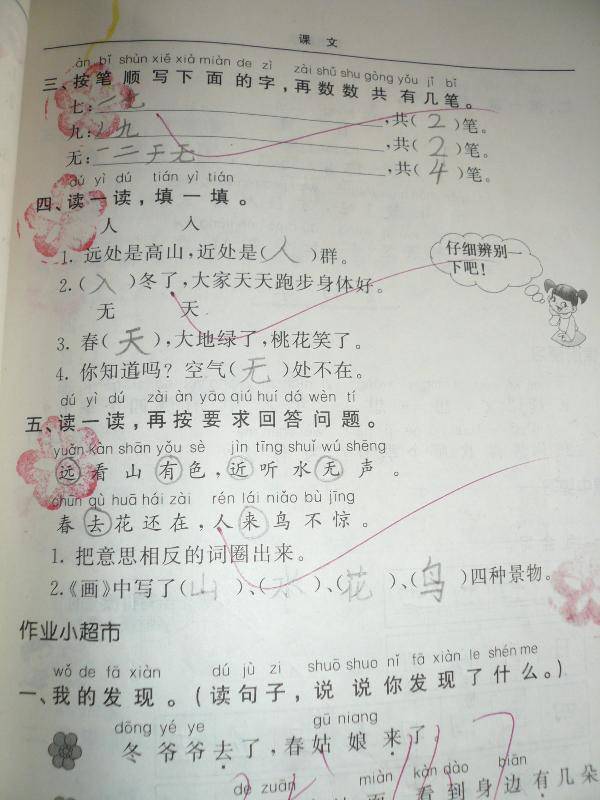 课 文
àn bǐ shùn xiě xià miàn de zì zài shǔ shu gòng yǒu jǐ bǐ
三、按笔顺写下面的字,再数数共有几笔。
七:一七,共(2)笔。
九:丿九,共(2)笔。
无:一二于无,共(4)笔。
dú yì dú tián yì tián
四、读一读,填一填。
人 入
1. 远处是高山,近处是(人)群。
2.(入)冬了,大家天天跑步身体好。
仔细辨别一下吧!
无 天
3. 春(天),大地绿了,桃花笑了。
4. 你知道吗?空气(无)处不在。
dú yì dú zài àn yāo qiú huí dá wèn tí
五、读一读,再按要求回答问题。
yuǎn kàn shān yǒu sè jìn tīng shuǐ wú shēng
远看山有色,近听水无声。
chūn qù huā hái zài rén lái niǎo bù jīng
春去花还在,人来鸟不惊。
1. 把意思相反的词圈出来。
2.《画》中写了(山)、(水)、(花)、(鸟)四种景物。
作业小超市
wǒ de fā xiàn dú jù zi shuō shuo nǐ fā xiàn le shén me
一、我的发现。(读句子,说说你发现了什么。)
dōng yé ye gū niang
冬爷爷去了,春姑娘来了。
de zuān miàn kàn dào biān
面 看到身边有几朵